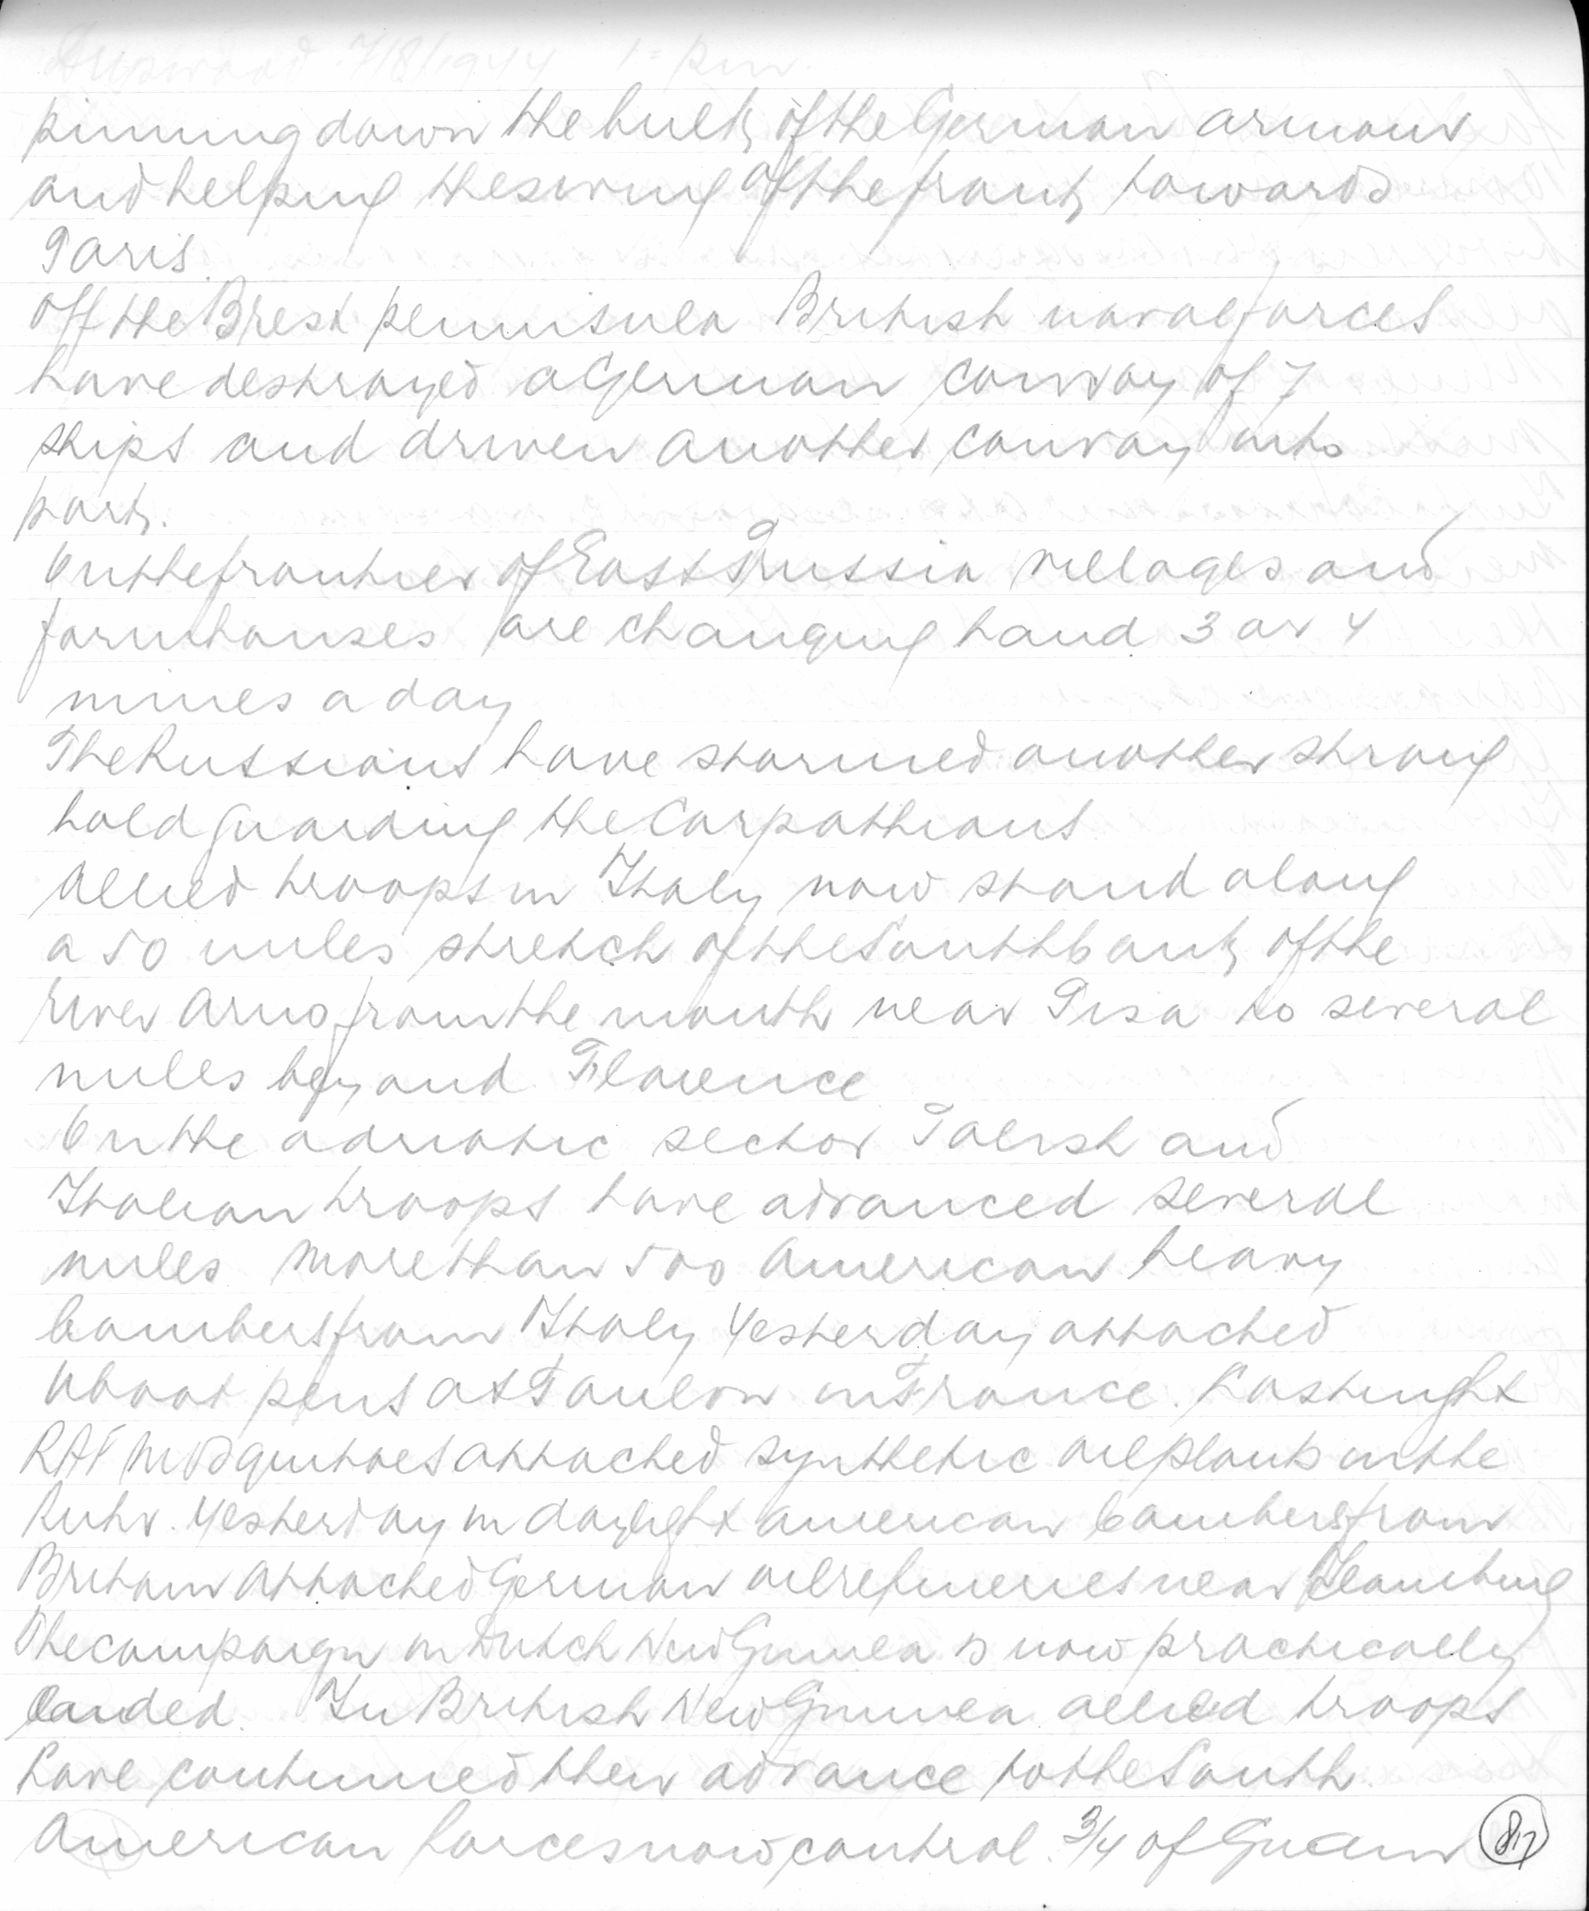 7/8/1944 1= p.m.
pinning down the bulk of the German armour
and helping the swing of the front towards
Paris.
Off the Brest penninsula British naval forces
have destroyed a German convoy of 7
ships and driven another convoy into
port.
On the frontier of East Prussia villages and
farmhouses are changing hand 3 or 4
mines a day
The Russians have stormed another strong
hold guarding the Carpathians
Allied troops in Italy now stand along
a 50 miles stretch of the South bank of the
river Arno from the mouth near Pisa to several
miles beyond Florence
On the adriatic sector Polish and
Italian troops have advanced several
miles More than 500 American heavy
bombers from Italy yesterday attached
Uboat pens at Toulon in France. Last night
RAF Mosquitoes attached synthetic oilplants in the
Ruhr. Yesterday in daylight american bombers from
Britain attached German oilrefineries near Hamburg
The campaign in Dutch New Guinea is now practically
ended. In British New Guinea allied troops
have continued their advance to the South.
American forces now control 3/4 of Guam
817